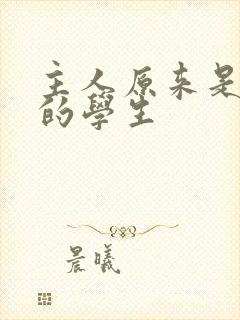 主人原来是
的學生
晨曦